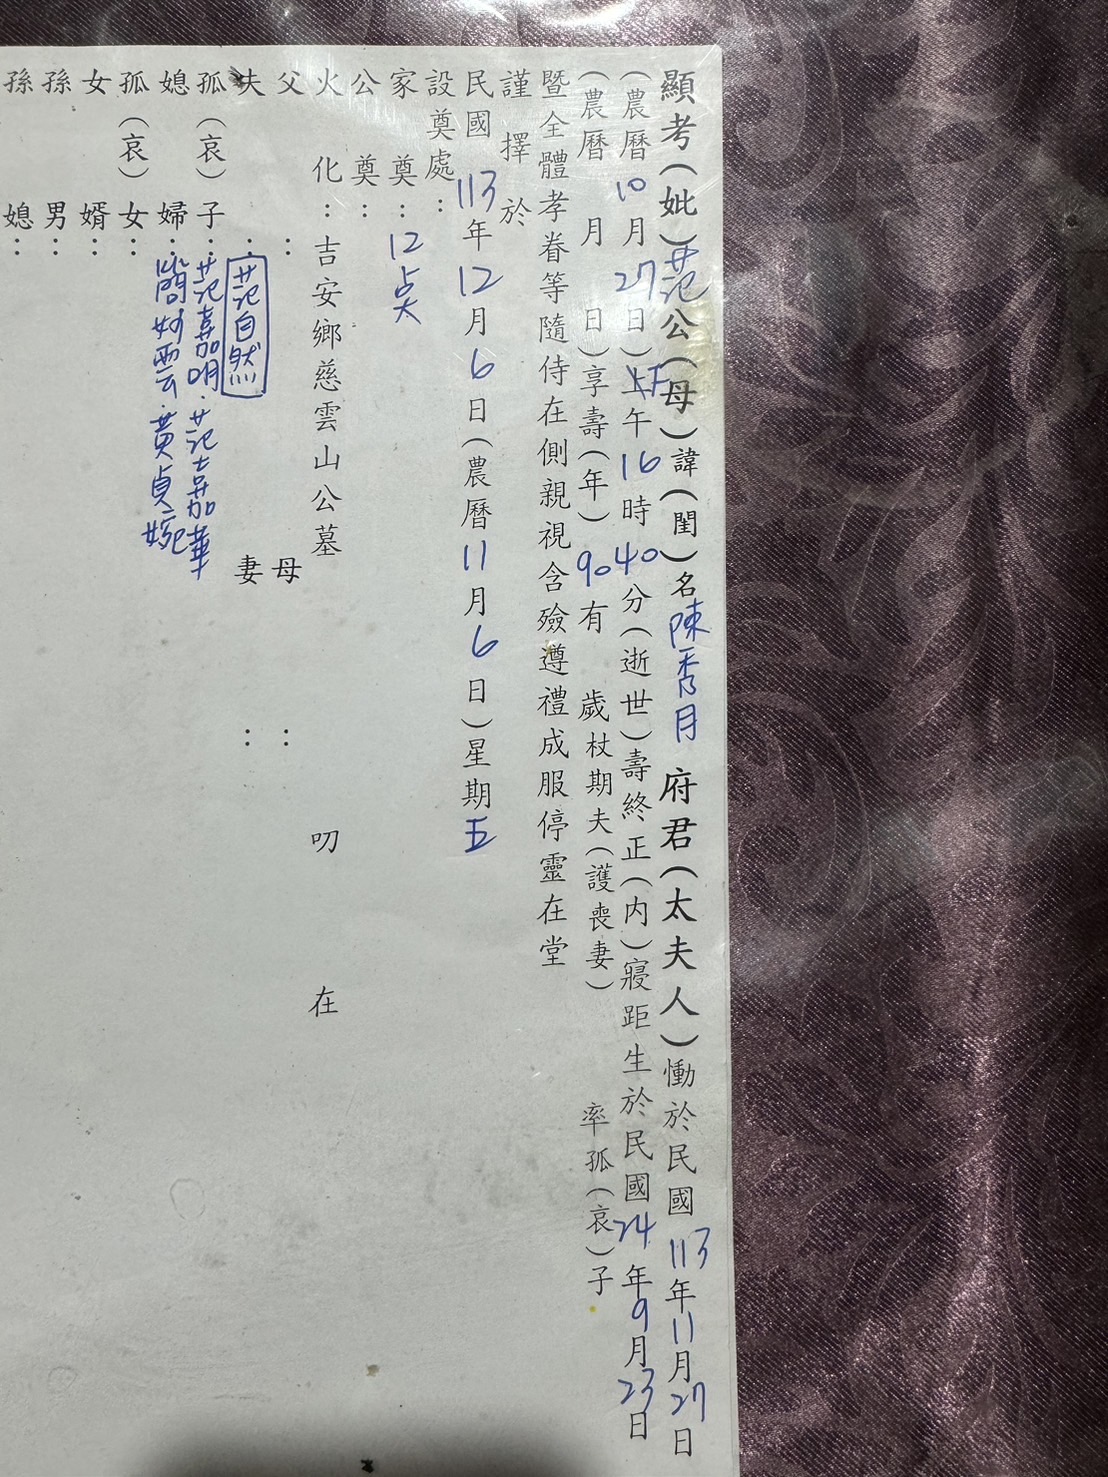 顯考(妣)范公(母)諱(閨)名陳秀月 府君(太夫人)慟於民國113年11月27日
(農曆10月27日)下午16時40分(逝世)壽終正(內)寢距生於民國24年9月23日
(農曆 月 日)享壽(年)90有 歲杖期夫(護喪妻) 率孤(哀)子
暨全體孝眷等隨侍在側親視含殮遵禮成服停靈在堂
謹擇於
民國113年12月6日(農曆11月6日)星期五
設奠處:
家奠:12点
公奠:
火化:吉安鄉慈雲山公墓 叨 在
父 : 母 :
夫 :范自然 妻 :
孤(哀)子:范嘉明.范嘉華
媳婦:簡妙雲.黃貞婉
孤(哀)女:
女婿:
孫男:
孫媳: